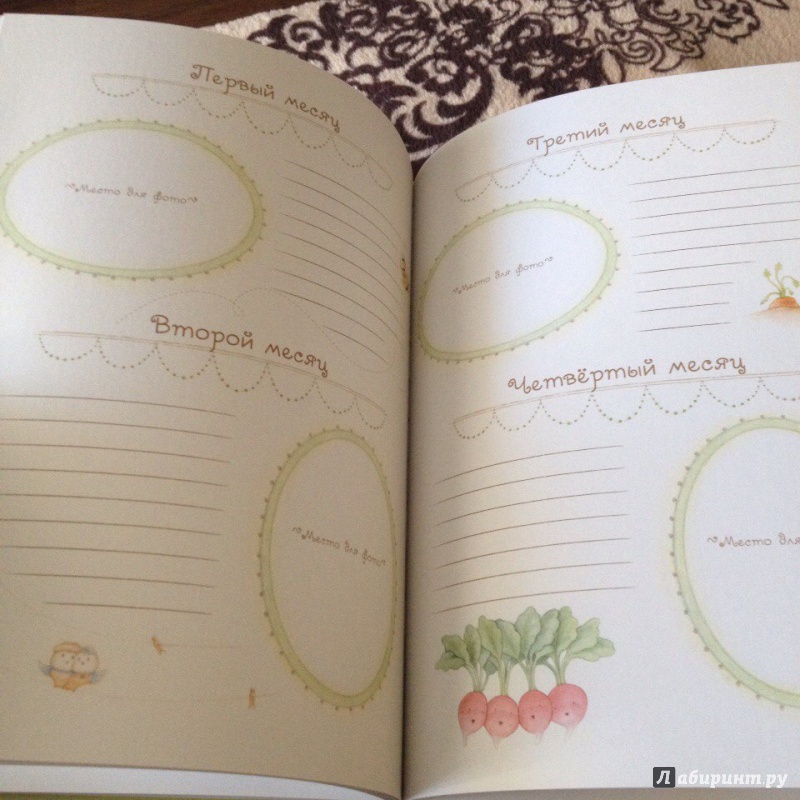 Первый месяц
~Место для фото~
Второй месяц
~Место для фото~
Третий месяц
~Место для фото~
Четвёртый месяц
~Место для
Лабиринт.ру